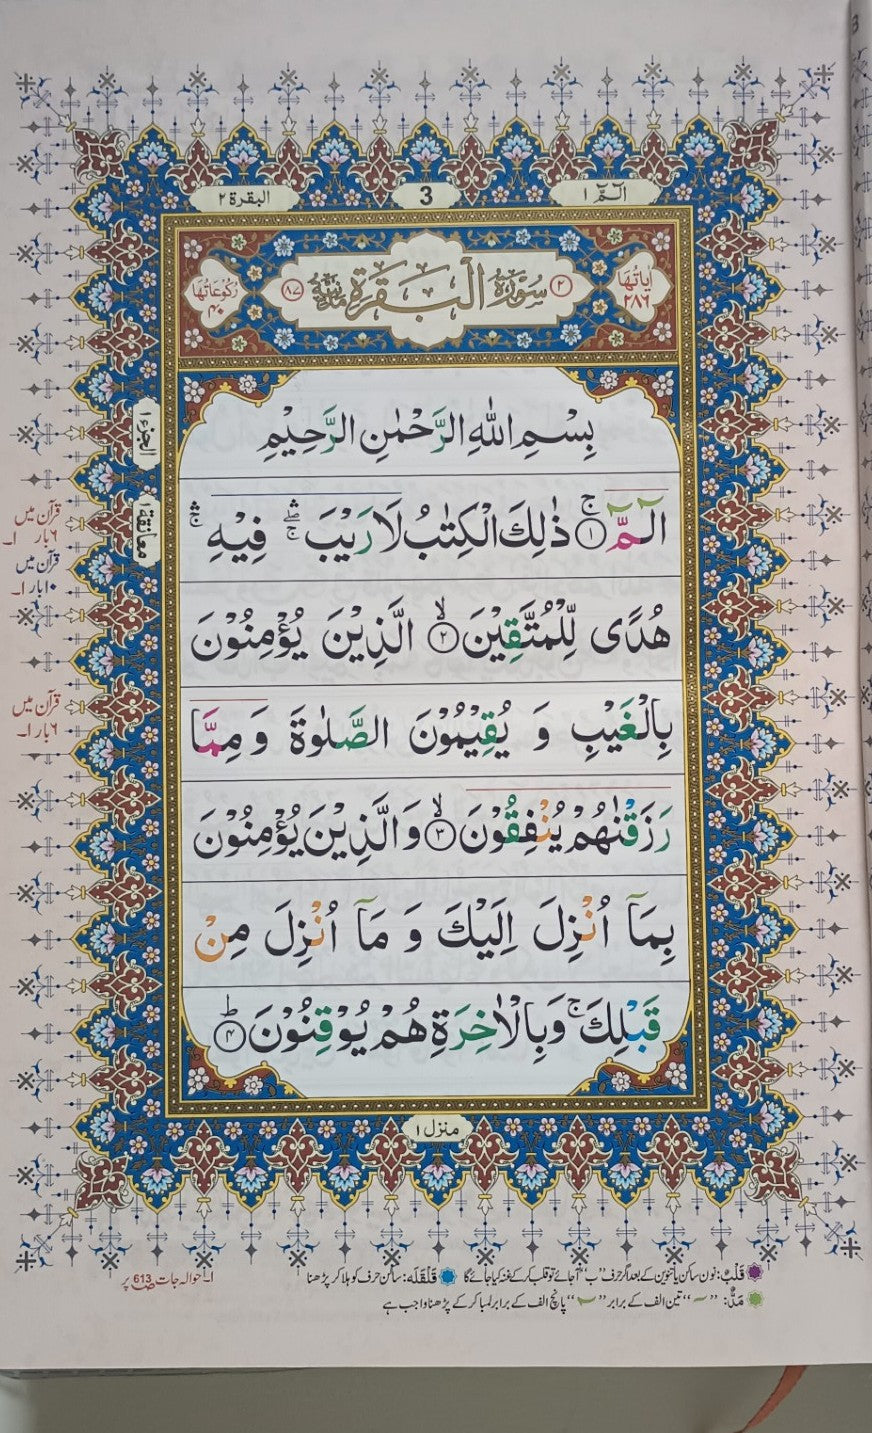 الٓمّٓ ١
3
البقرة ٢
اٰیاتُهَا ٢٨٦
٢ سُوْرَةُ الْبَقَرَةِ مَدَنِیَّةٌ ٨٧
رُكُوْعَاتُهَا ٤٠
بِسْمِ اللّٰهِ الرَّحْمٰنِ الرَّحِیْمِ
الٓمّٓ ۚ﴿١﴾ ذٰلِكَ الْكِتٰبُ لَا رَیْبَ ۛۖۚ فِیْهِ ۛۚ
هُدًی لِّلْمُتَّقِیْنَ ۙ﴿٢﴾ الَّذِیْنَ یُؤْمِنُوْنَ
بِالْغَیْبِ وَ یُقِیْمُوْنَ الصَّلٰوةَ وَ مِمَّا
رَزَقْنٰهُمْ یُنْفِقُوْنَ ۙ﴿٣﴾ وَ الَّذِیْنَ یُؤْمِنُوْنَ
بِمَاۤ اُنْزِلَ اِلَیْكَ وَ مَاۤ اُنْزِلَ مِنْ
قَبْلِكَ ۚ وَ بِالْاٰخِرَةِ هُمْ یُوْقِنُوْنَ ؕ﴿٤﴾
الجزء ١
معانقة ١
قرآن میں
٦ بار ١ـ
قرآن میں
١٠ بار ١ـ
قرآن میں
٦ بار ١ـ
منزل ١
قَلْبٌ: نون ساکن یا تنوین کے بعد اگر حرف "ب" آجائے تو قلب کر کے غنہ کیا جائے گا قَلْقَلَه: ساکن حرف کو ہلا کر پڑھنا ١ـ حوالہ جات ص613 پر
مَدٌّ: "ـٓ" تین الف کے برابر "ـٓ" پانچ الف کے برابر لمبا کر کے پڑھنا واجب ہے